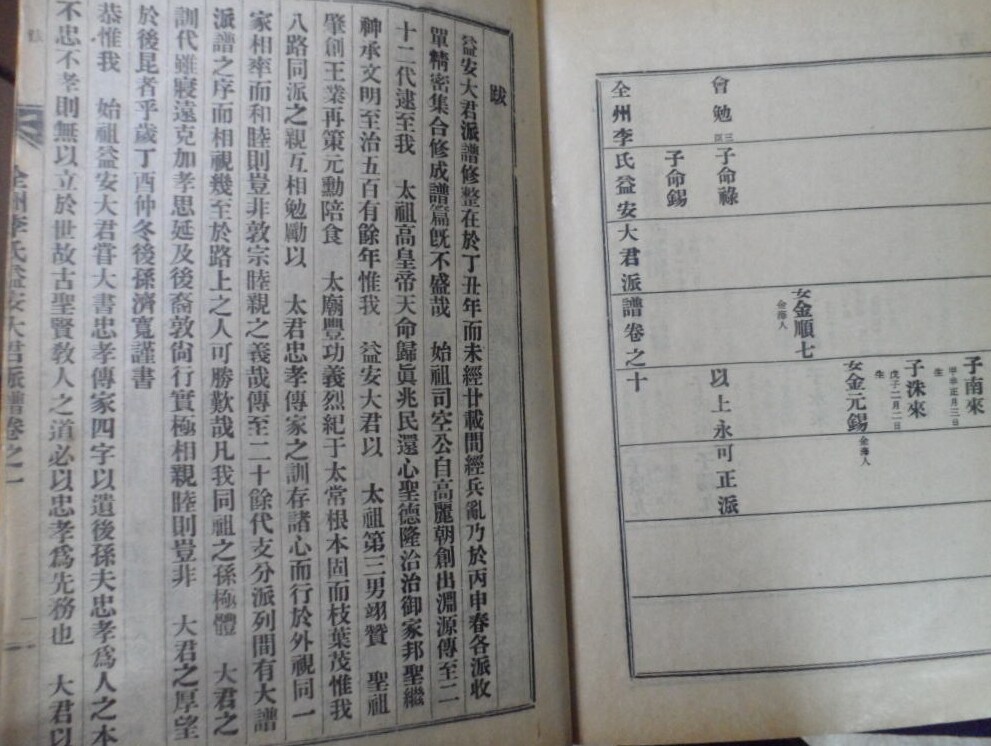 會勉
子命祿
子命錫
女金順七
金海人
子南來
子洙來
戊子二月二日
生
女金元錫
金海人
以上永可正派
全州李氏益安大君派譜卷之十
跋
益安大君派譜修整在於丁丑年而未經廿載間經兵亂乃於丙申春各派收
單精密集合修成譜篇旣不盛哉 始祖司空公自高麗朝創出淵源傳至二
十二代逮至我 太祖高皇帝天命歸眞兆民還心聖德隆洽治御家邦聖繼
神承文明至治五百有餘年惟我 益安大君以 太祖第三男翊贊 聖祖
肇創王業再策元勳陪食 太廟豐功義烈紀于太常根本固而枝葉茂惟我
八路同派之親互相勉勵以 太君忠孝傳家之訓存諸心而行於外視同一
家相率而和睦則豈非敦宗睦親之義哉傳至二十餘代支分派列間有大譜
派譜之序而相視幾至於路上之人可勝歎哉凡我同祖之孫極體 大君之
訓代雖寢遠克加孝思延及後裔敦尙行實極相親睦則豈非 大君之厚望
於後昆者乎歲丁酉仲冬後孫濟寬謹書
恭惟我 始祖益安大君嘗大書忠孝傳家四字以遺後孫夫忠孝爲人之本
不忠不孝則無以立於世故古聖賢敎人之道必以忠孝爲先務也 大君以
全州李氏益安大君派譜卷之一